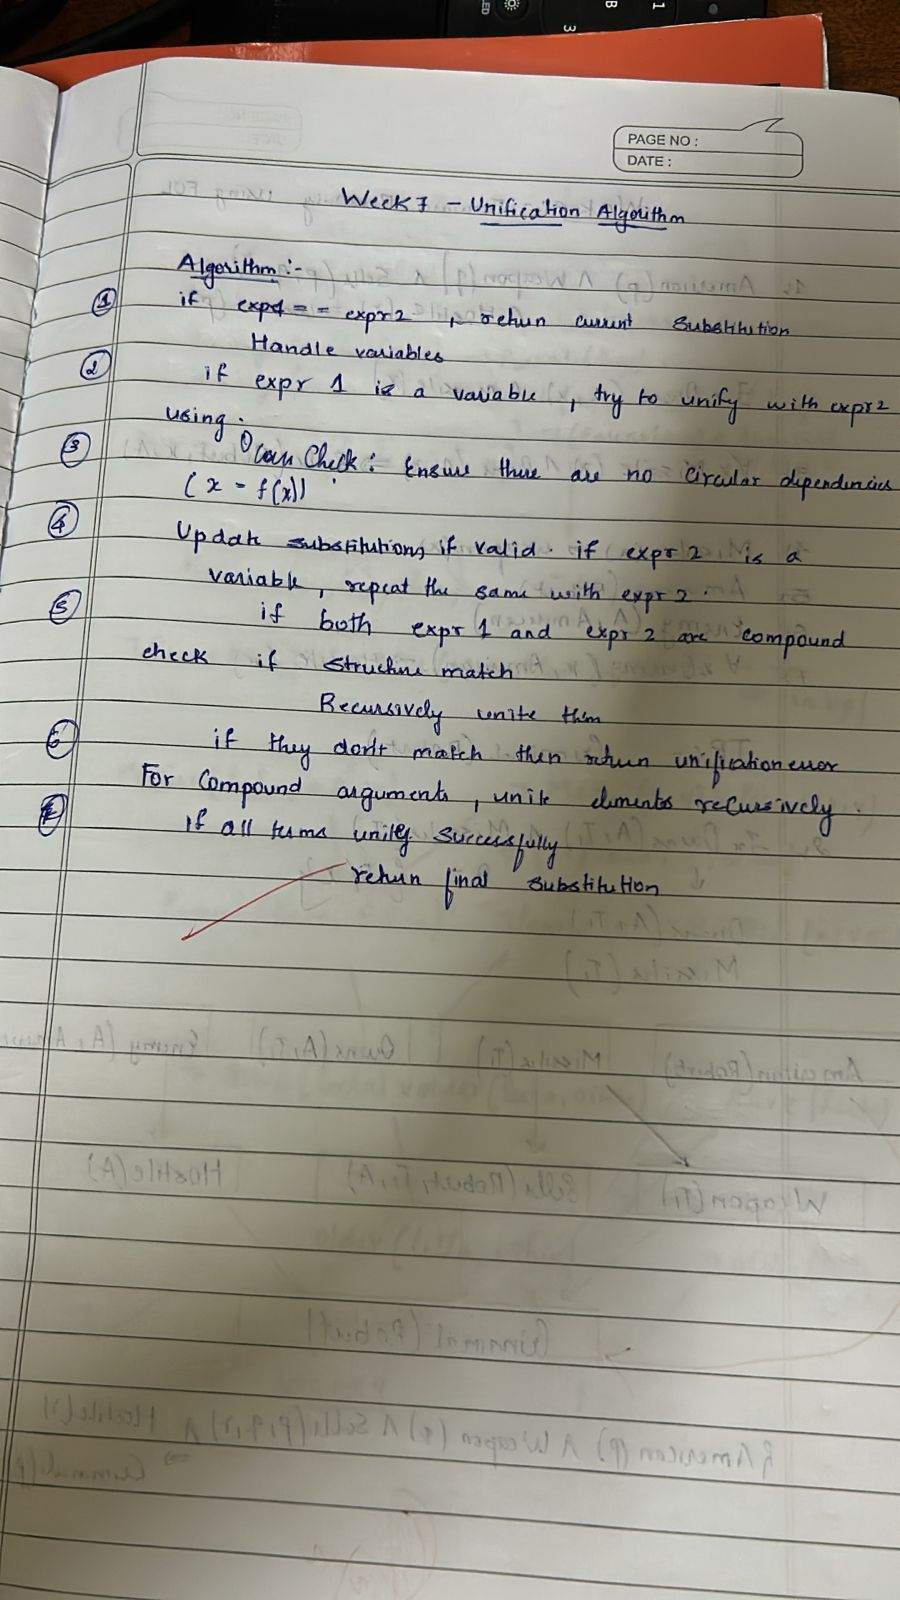 PAGE NO :
DATE :
Week 7 - Unification Algorithm
Algorithm :-
① if exp1 == expr 2 , return current substitution
Handle variables
② if expr 1 is a variable , try to unify with expr 2
using .
③ Occurs Check : Ensure there are no circular dependencies
(x = f(x))
④ Update substitutions if valid . if expr 2 is a
variable , repeat the same with expr 2 .
⑤ if both expr 1 and expr 2 are compound
check if structure match
Recursively unite them
⑥ if they don't match then return unification error
For Compound arguments , unite elements recursively .
If all terms unify successfully
return final substitution